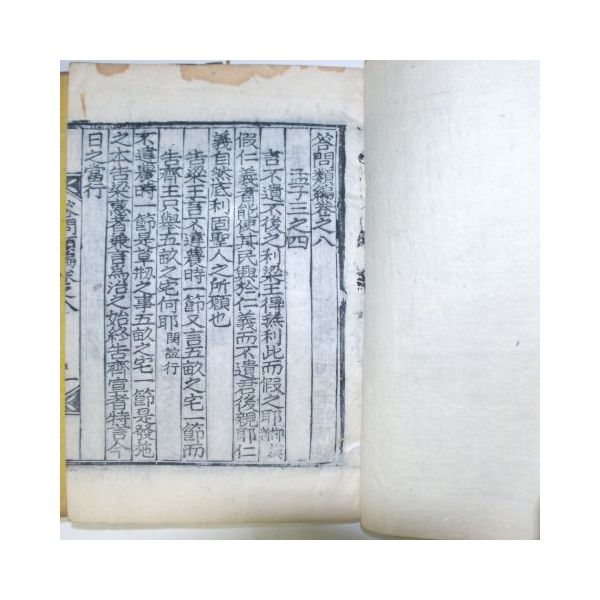 答問類編卷之八
孟子三之四
言不遺不後之利梁王得無利此而假之耶
假仁義者能使其民興於仁義而不遺君後親耶仁
義自然底利固聖人之所願也
告梁王言不違農時一節又言五畝之宅一節而
告齊王只擧五畝之宅何耶 行
不違農時一節是草刱之事五畝之宅一節是發施
之本告梁惠者兼言爲治之始終告齊宣者特言今
日之當行
答問類編卷之八